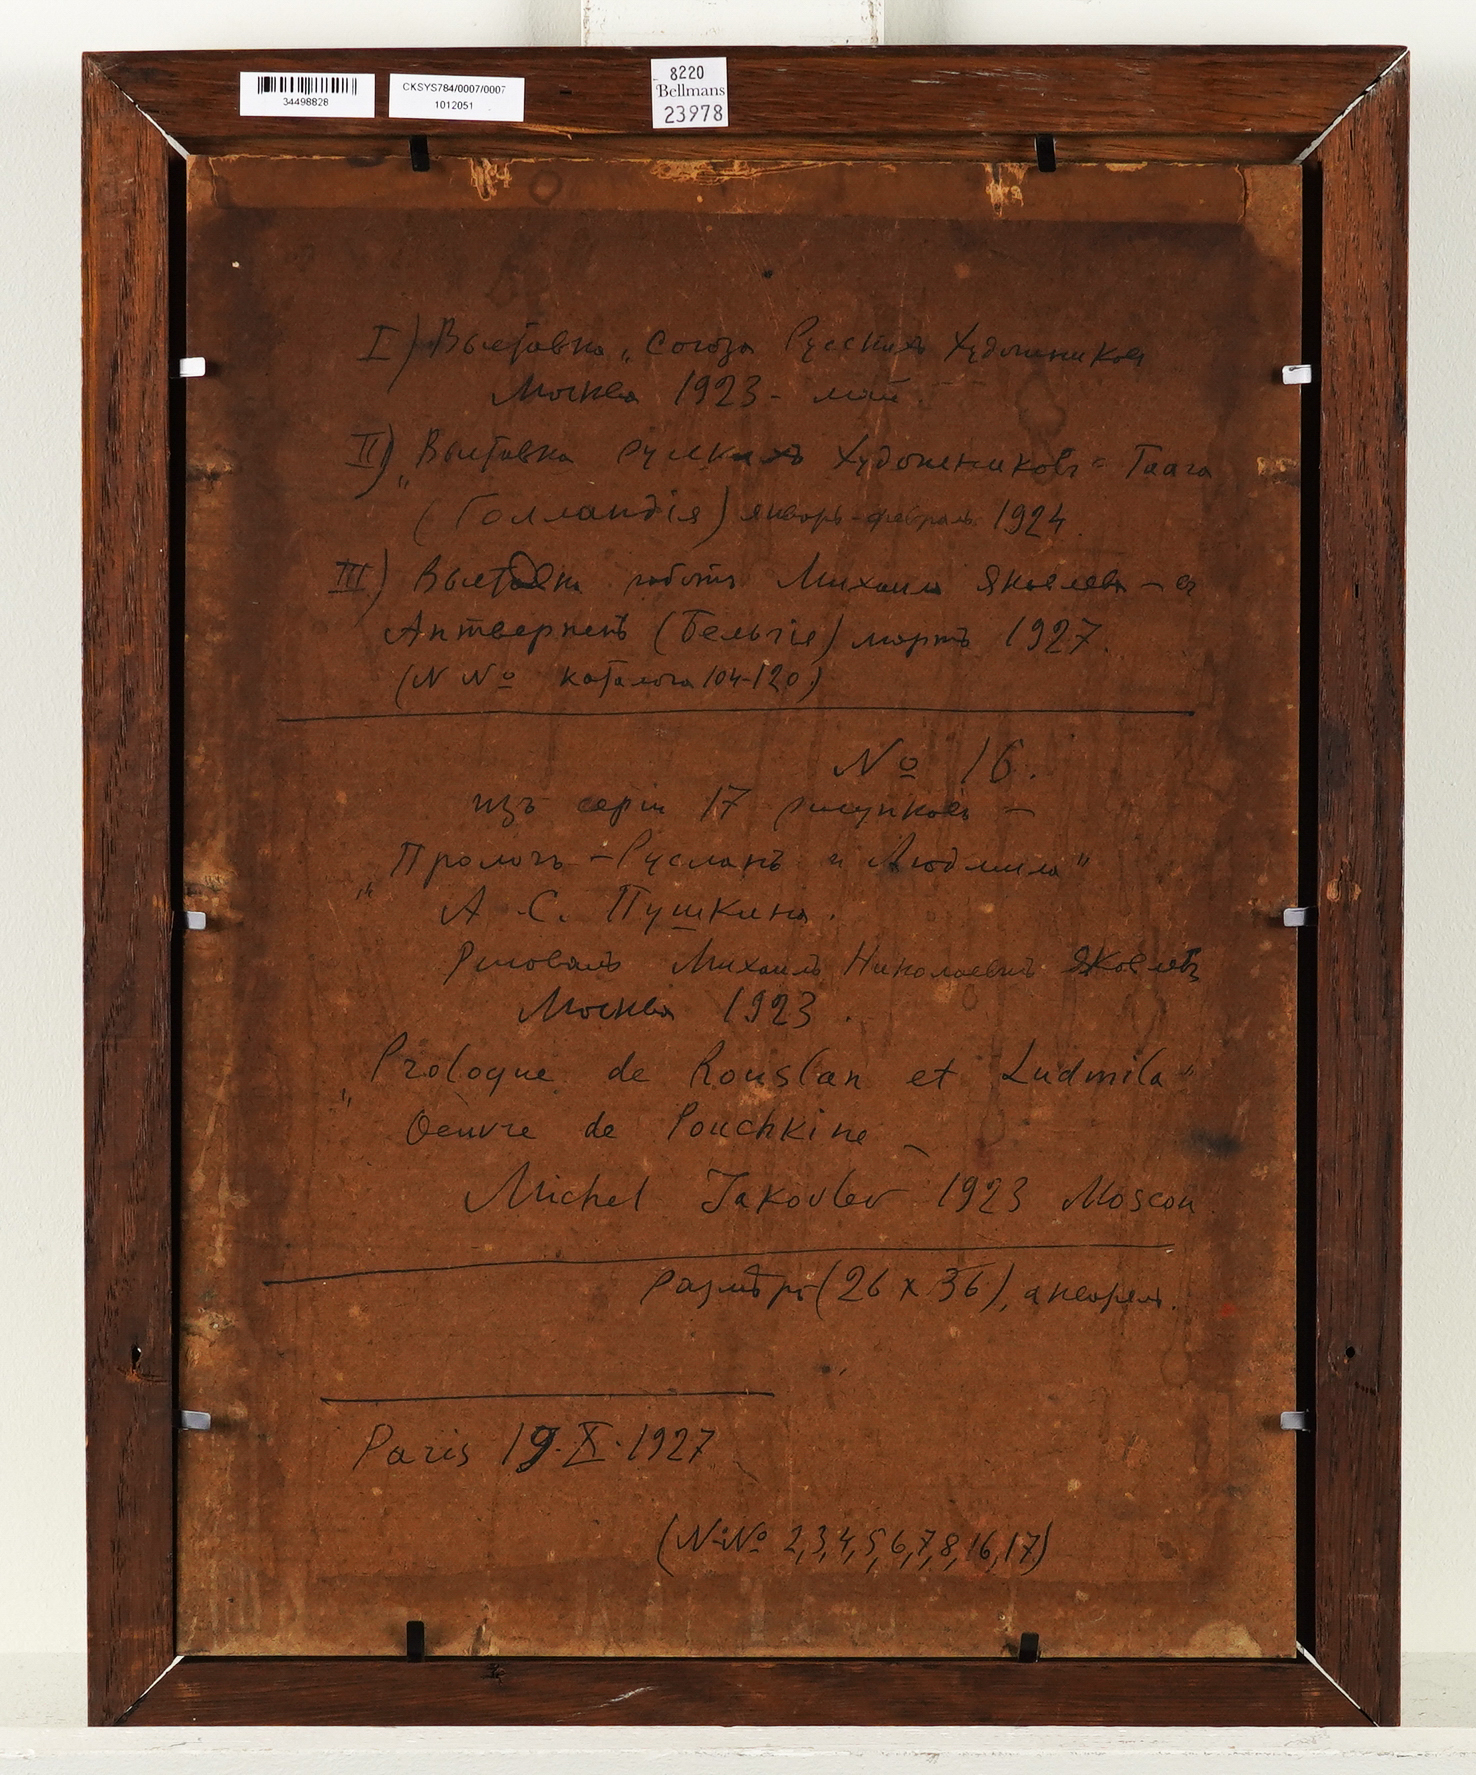 34498828
CKSYS784/0007/0007
1012051
8220
Bellmans
23978
I) Выставка „Союза Русскихъ Художниковъ
Москва 1923 - май.
II) „Выставка русскихъ художниковъ" Гаага
(Голландія) январь-февраль 1924.
III) Выставка работъ Михаила Яковлева – въ
Антверпенѣ (Бельгія) мартъ 1927.
(N Nº каталога 104-120)
Nº 16.
изъ серіи 17 рисунковъ –
„Прологъ – Русланъ и Людмила"
А. С. Пушкина.
Рисовалъ Михаилъ Николаевичъ Яковлевъ
Москва 1923.
„Prologue de Rouslan et Ludmila"
Oeuvre de Pouchkine –
Michel Jakovlev 1923 Moscou
Размѣръ (26 x 36), акварель.
Paris 19.X.1927
(N-Nº 2,3,4,5,6,7,8,16,17)